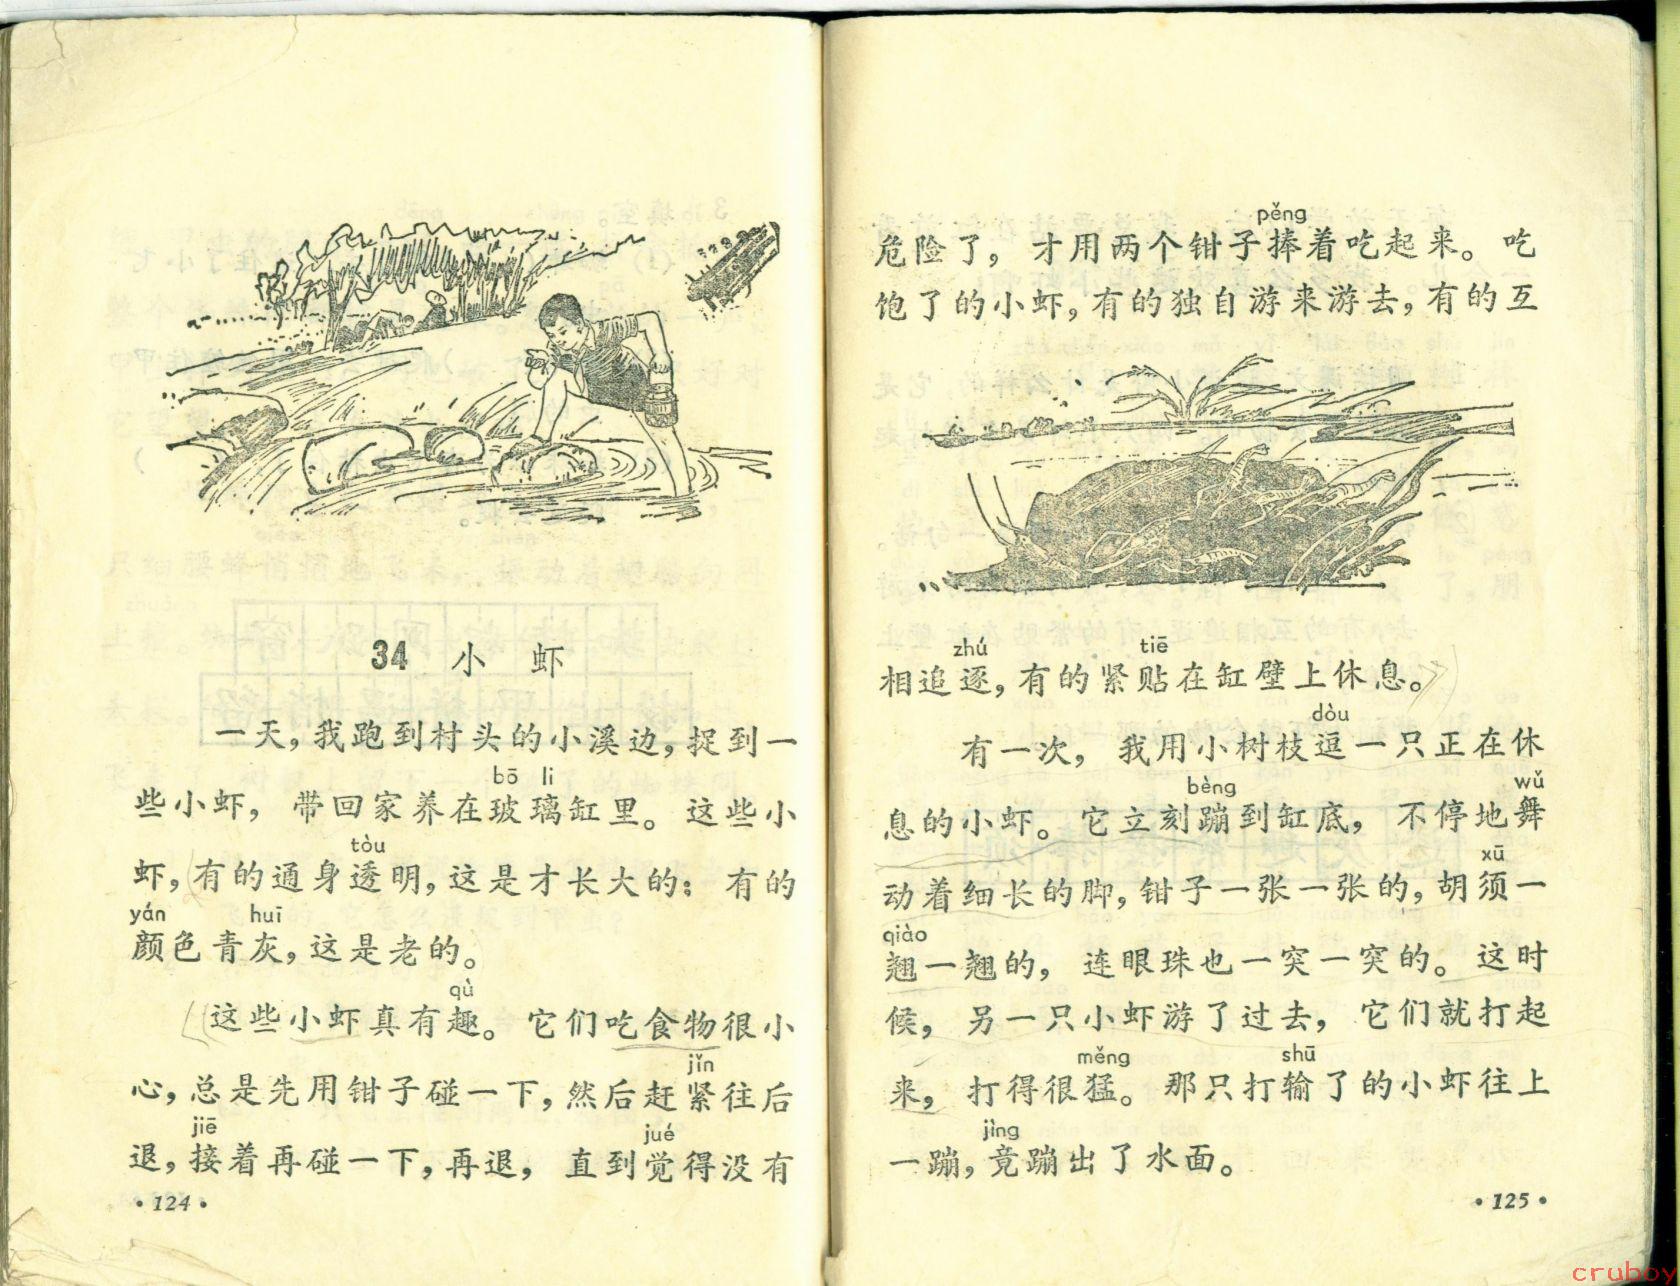 34 小 虾
一天，我跑到村头的小溪边，捉到一
bō li
些小虾， 带回家养在玻璃缸里。 这些小
tòu
虾，有的通身透明，这是才长大的； 有的
yán huī
颜色青灰，这是老的。
qù
这些小虾真有趣。 它们吃食物很小
jǐn
心，总是先用钳子碰一下，然后赶紧往后
jiē jué
退，接着再碰一下，再退， 直到觉得没有
·124·
pěng
危险了， 才用两个钳子捧着吃起来。 吃
饱了的小虾，有的独自游来游去，有的互
zhú tiē
相追逐，有的紧贴在缸壁上休息。
dòu
有一次， 我用小树枝逗一只正在休
bèng wǔ
息的小虾。 它立刻蹦到缸底， 不停地舞
xū
动着细长的脚，钳子一张一张的，胡须一
qiào
翘一翘的， 连眼珠也一突一突的。 这时
候， 另一只小虾游了过去， 它们就打起
měng shū
来， 打得很猛。 那只打输了的小虾往上
jìng
一蹦，竟蹦出了水面。
·125·
cruboy